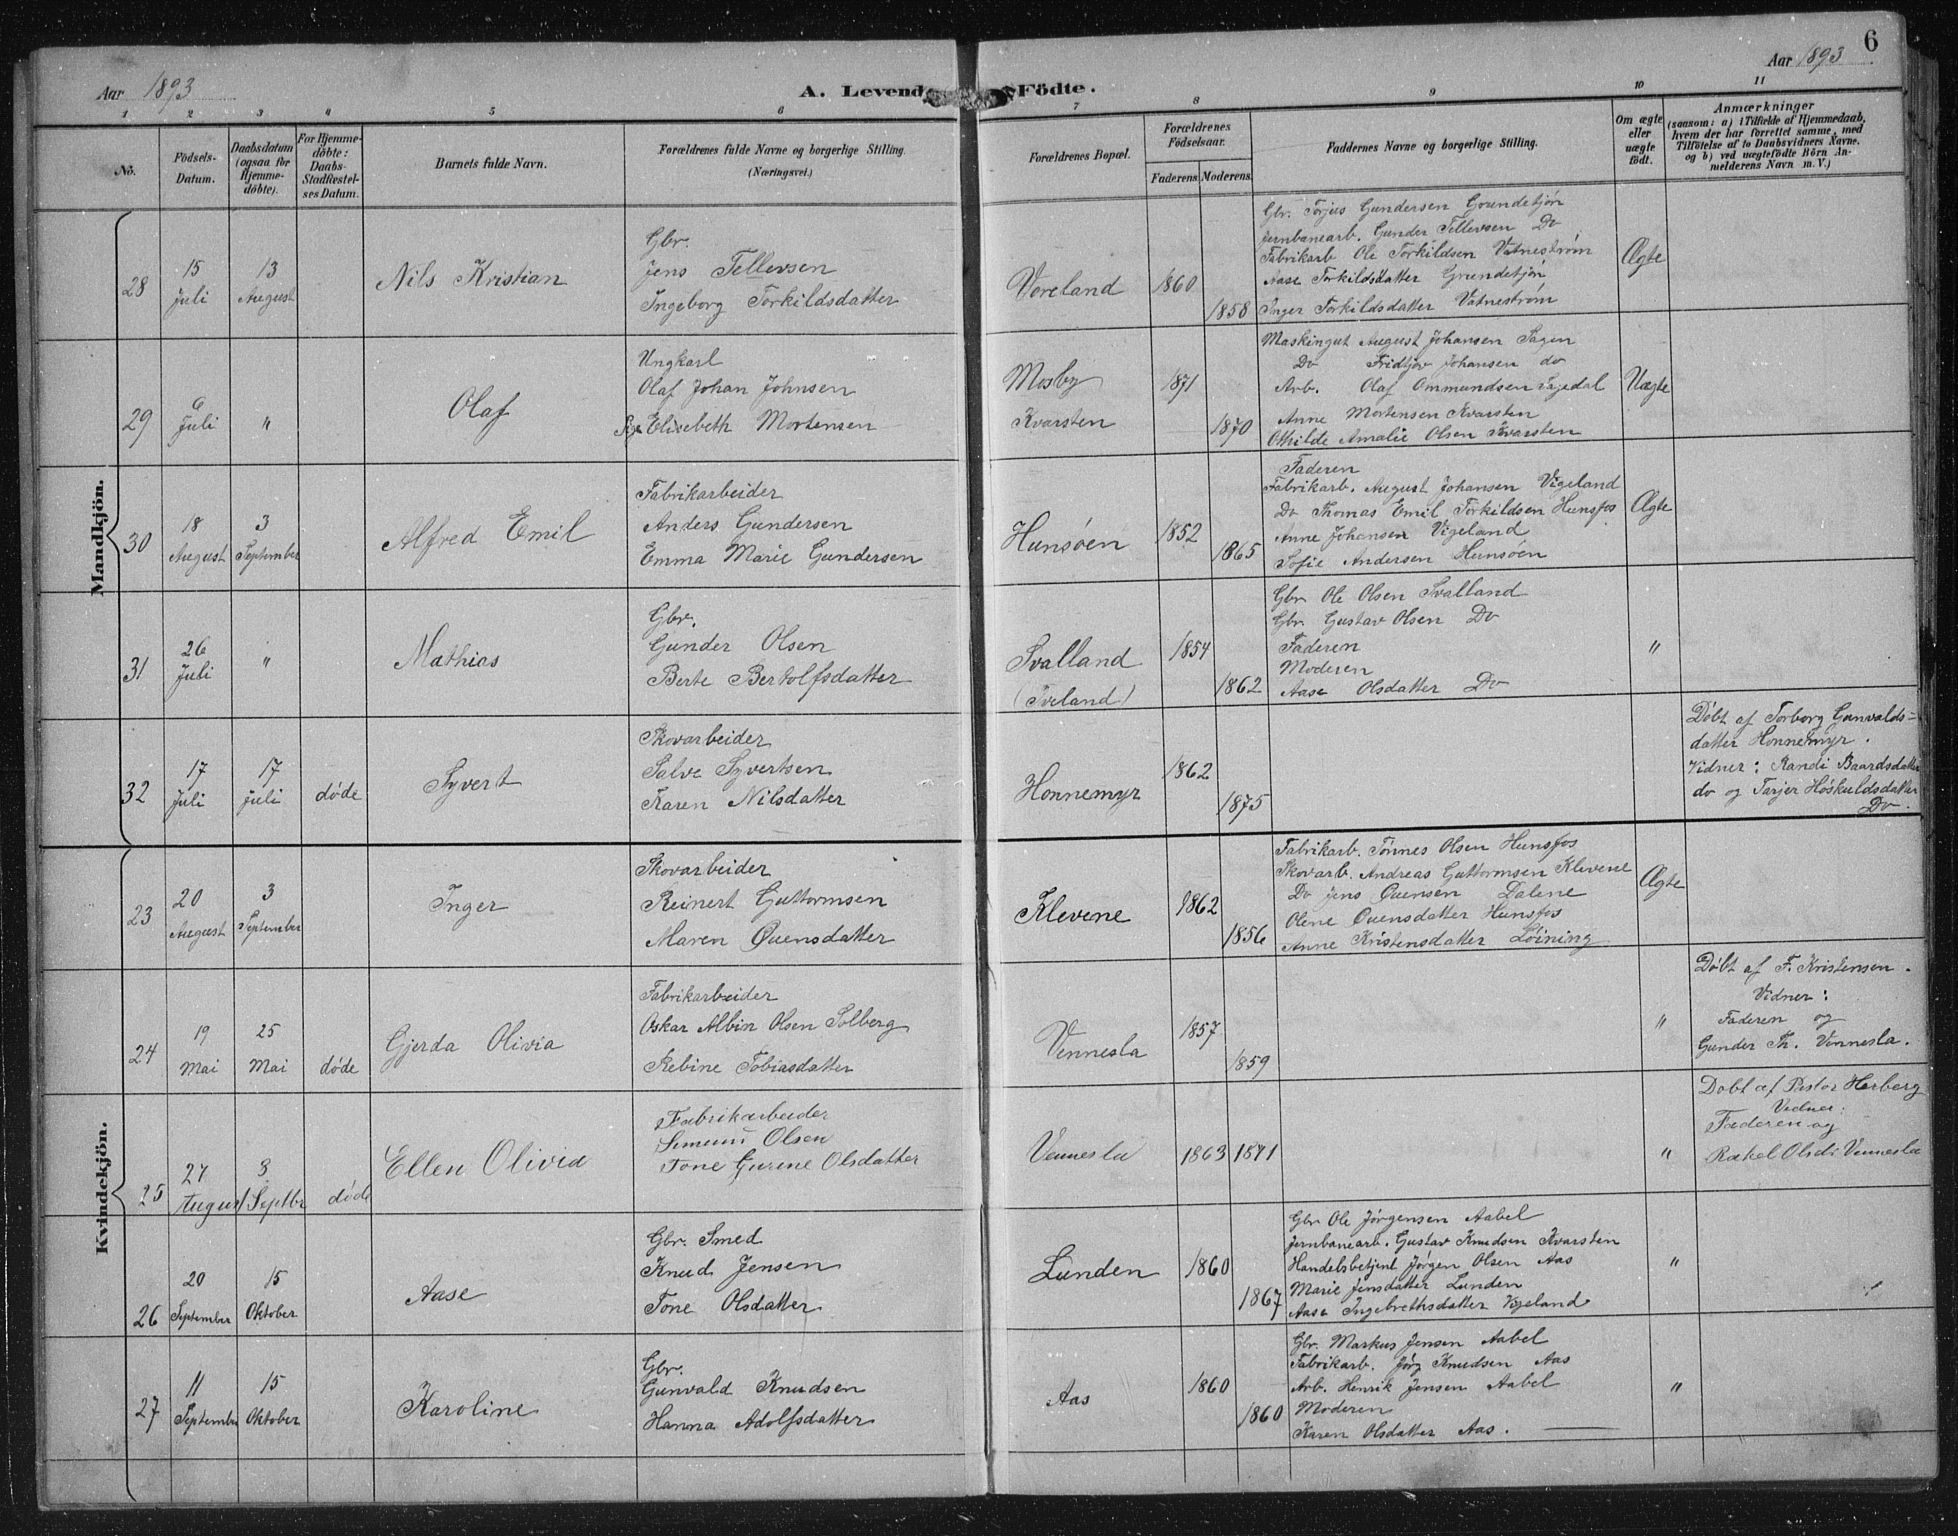 6
Aar 1893
A. Levende Födte.
Aar 1893
1 2 3 4 5 6 7 8 9 10 11
No.
Födsels-
Datum.
Daabsdatum
(ogsaa for
Hjemme-
döbte).
For Hjemme-
döbte:
Daabs-
Stadfæstel-
ses Datum.
Barnets fulde Navn.
Forældrenes fulde Navne og borgerlige Stilling.
(Næringsvei.)
Forældrenes Bopæl.
Forældrenes
Födselsaar.
Faderens. Moderens.
Faddernes Navne og borgerlige Stilling.
Om ægte
eller
uægte
födt.
Anmærkninger
(saasom: a) i Tilfælde af Hjemmedaab,
hvem der har forrettet samme, med
Tilföielse af to Daabsvidners Navne.
og b) ved uægtefödte Börn An-
melderens Navn m. V.)
Mandkjön.
28
15
Juli
13
August
Nils Kristian
Gbr.
Jens Tellevsen
Ingeborg Torkildsdatter
Voreland
1860
1858
Gbr. Torjus Gundersen Grundetjøn
Jernbanearb. Gunder Tellevsen Do
Fabrikarb Ole Torkildsen Vatnestrøm
Aase Torkildsdatter Grundetjøn
Inger Torkildsdatter Vatnestrøm
Ægte
29
6
Juli
"
Olaf
Ungkarl
Olaf Johan Johnsen
Pige Elisebeth Mortensen
Mosby
Kvarsten
1871
1870
Maskingut August Johansen Sagen
Do Fridtjov Johansen do
Arb. Olaf Ommundsen Sagedal
Anne Mortensen Kvarsten
Othilde Amalie Olsen Kvarsten
Uægte
30
18
August
3
September
Alfred Emil
Fabrikarbeider
Anders Gundersen
Emma Marie Gundersen
Hunsøen
1852
1865
Faderen
Fabrikarb. August Johansen Vigeland
Do Thomas Emil Torkildsen Hunsfos
Anne Johansen Vigeland
Sofie Andersen Hunsøen
Ægte
31
26
Juli
"
Mathias
Gbr.
Gunder Olsen
Berte Bertolfsdatter
Svalland
(Iveland)
1854
1862
Gbr Ole Olsen Svalland
Gbr. Gustav Olsen Do
Faderen
Moderen
Aase Olsdatter Do
"
32
17
Juli
17
Juli
døde
Syvert
Skovarbeider
Salve Syvertsen
Karen Nilsdatter
Honnemyr
1862
1875
Døbt af Torborg Gunvalds-
datter Honnemyr.
Vidner: Randi Baardsdatter
do og Tarjer Høskuldsdatter
Do.
Kvindekjön.
23
20
August
3
September
Inger
Skovarbeider
Reinert Guttormsen
Maren Ouensdatter
Klevene
1862
1856
Fabrikarb. Tønnes Olsen Hunsfos
Skovarb. Andreas Guttormsen Klevene
Do Jens Ouensen Dalene
Olene Ouensdatter Hunsfos
Anne Kristensdatter Løining
Ægte
24
19
Mai
25
Mai
døde
Gjerda Olivia
Fabrikarbeider
Oskar Albin Olsen Solberg
Rebine Tobiasdatter
Vennesla
1857
1859
"
Døbt af F. Kristensen.
Vidner:
Faderen og
Gunder Th. Vennesla.
25
27
August
8
Septbr
døde
Ellen Olivia
Fabrikarbeider
Simund Olsen
Tone Gurine Olsdatter
Vennesla
1863 1871
"
Døbt af Pastor Herberg
Vidner:
Faderen og
Rakel Olsd: Vennesla
26
20
September
15
Oktober
Aase
Gbr. Smed
Knud Jensen
Tone Olsdatter
Lunden
1860
1867
Gbr Ole Jørgensen Aabel
Jernbanearb. Gustav Knudsen Kvarsten
Handelsbetjent Jørgen Olsen Aas
Marie Jensdatter Lunden
Aase Ingebrethsdatter Vigeland
"
27
11
September
15
Oktober
Karoline
Gbr.
Gunvald Knudsen
Hanna Adolfsdatter
Aas
1860
1860
Gbr. Markus Jensen Aabel
Fabrikarb. Jørg Knudsen Aas
Arb. Henrik Jensen Aabel
Moderen
Karen Olsdatter Aas.
"